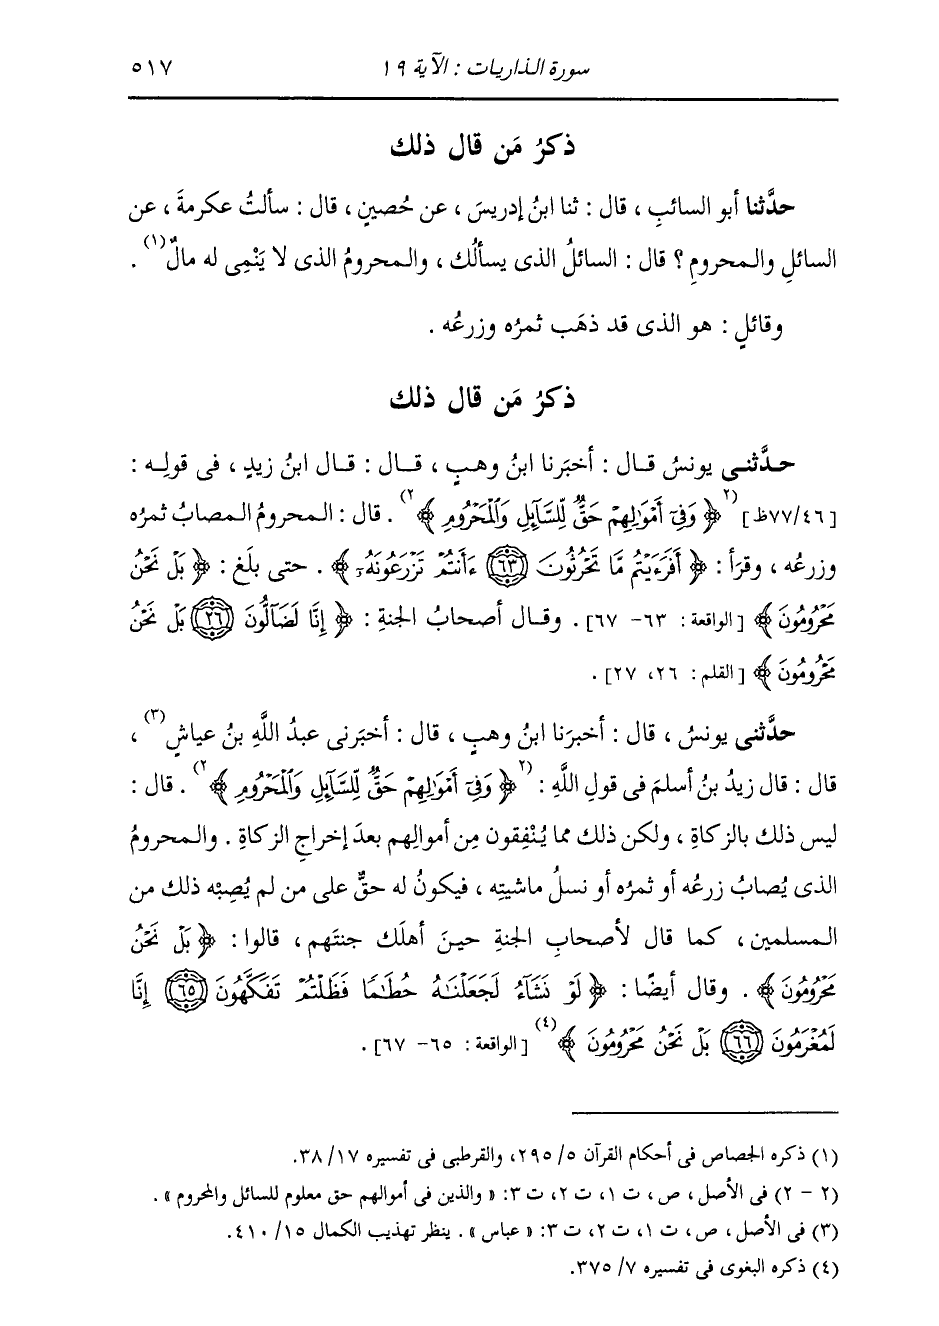 سورة الذاريات : الآية ١٩ ٥١٧
ذكرُ مَن قال ذلك
حدَّثنا أبو السائبِ ، قال : ثنا ابنُ إدريسَ ، عن حُصينٍ ، قال : سألتُ عكرمةَ ، عن
السائلِ والمحرومِ ؟ قال : السائلُ الذى يسألُك ، والمحرومُ الذى لا يَنْمِى له مالٌ(١) .
وقائلٍ : هو الذى قد ذهَب ثمرُه وزرعُه .
ذكرُ مَن قال ذلك
حدَّثنى يونسُ قال : أخبَرنا ابنُ وهبٍ ، قال : قال ابنُ زيدٍ ، فى قولِه :
[٧٧/٤٦ظ] (٢﴿ وَفِىٓ أَمْوَٰلِهِمْ حَقٌّ لِّلسَّآئِلِ وَٱلْمَحْرُومِ ﴾٢) . قال : المحرومُ المصابُ ثمرُه
وزرعُه ، وقرَأ : ﴿ أَفَرَءَيْتُم مَّا تَحْرُثُونَ ﴿٦٣﴾ ءَأَنتُمْ تَزْرَعُونَهُۥٓ ﴾ . حتى بلَغ : ﴿ بَلْ نَحْنُ
مَحْرُومُونَ ﴾ [الواقعة : ٦٣- ٦٧] . وقال أصحابُ الجنةِ : ﴿ إِنَّا لَضَآلُّونَ ﴿٢٦﴾ بَلْ نَحْنُ
مَحْرُومُونَ ﴾ [القلم : ٢٦، ٢٧] .
حدَّثنى يونسُ ، قال : أخبرَنا ابنُ وهبٍ ، قال : أخبَرنى عبدُ اللَّهِ بنُ عياشٍ(٣) ،
قال : قال زيدُ بنُ أسلمَ فى قولِ اللَّهِ : (٢﴿ وَفِىٓ أَمْوَٰلِهِمْ حَقٌّ لِّلسَّآئِلِ وَٱلْمَحْرُومِ ﴾٢) . قال :
ليس ذلك بالزكاةِ ، ولكن ذلك مما يُنْفِقون مِن أموالِهم بعدَ إخراجِ الزكاةِ . والمحرومُ
الذى يُصابُ زرعُه أو ثمرُه أو نسلُ ماشيتِه ، فيكونُ له حقٌّ على من لم يُصِبْه ذلك من
المسلمين ، كما قال لأصحابِ الجنةِ حينَ أهلَك جنتَهم ، قالوا : ﴿ بَلْ نَحْنُ
مَحْرُومُونَ ﴾ . وقال أيضًا : ﴿ لَوْ نَشَآءُ لَجَعَلْنَٰهُ حُطَٰمًا فَظَلْتُمْ تَفَكَّهُونَ ﴿٦٥﴾ إِنَّا
لَمُغْرَمُونَ ﴿٦٦﴾ بَلْ نَحْنُ مَحْرُومُونَ ﴾(٤) [الواقعة : ٦٥- ٦٧] .
(١) ذكره الجصاص فى أحكام القرآن ٥/ ٢٩٥، والقرطبى فى تفسيره ١٧/ ٣٨.
(٢ - ٢) فى الأصل ، ص ، ت ١، ت ٢، ت ٣: « والذين فى أموالهم حق معلوم للسائل والمحروم » .
(٣) فى الأصل ، ص ، ت ١، ت ٢، ت ٣: « عباس » . ينظر تهذيب الكمال ١٥/ ٤١٠.
(٤) ذكره البغوى فى تفسيره ٧/ ٣٧٥.